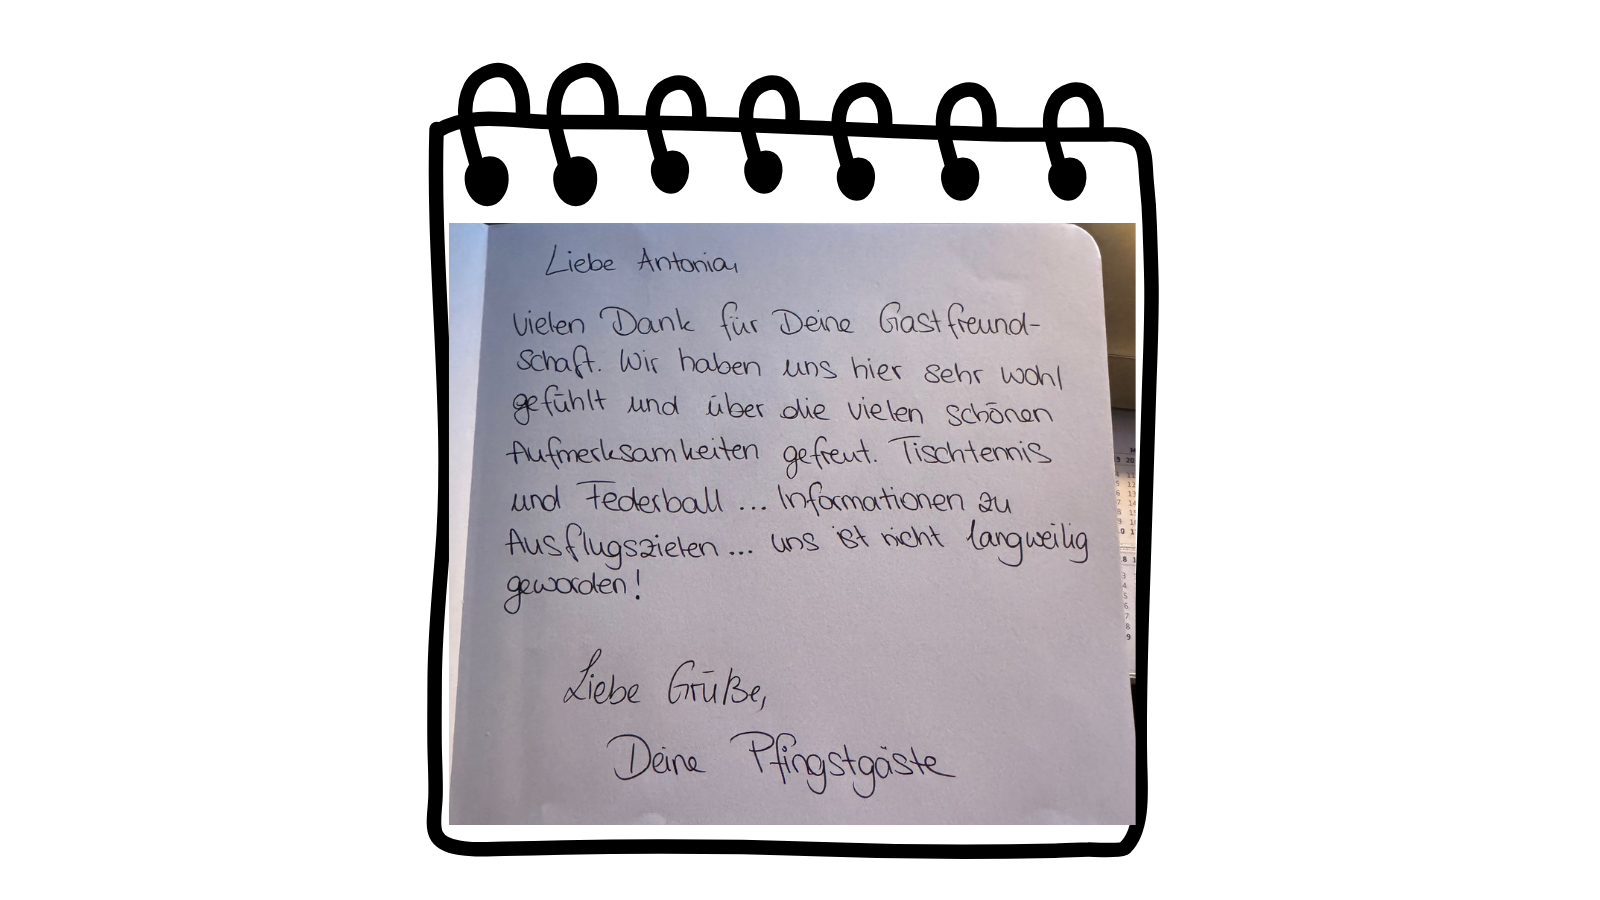 Liebe Antonia,
vielen Dank für Deine Gastfreund-
schaft. Wir haben uns hier sehr wohl
gefühlt und über die vielen schönen
Aufmerksamkeiten gefreut. Tischtennis
und Federball ... Informationen zu
Ausflugszielen ... uns ist nicht langweilig
geworden!
Liebe Grüße,
Deine Pfingstgäste